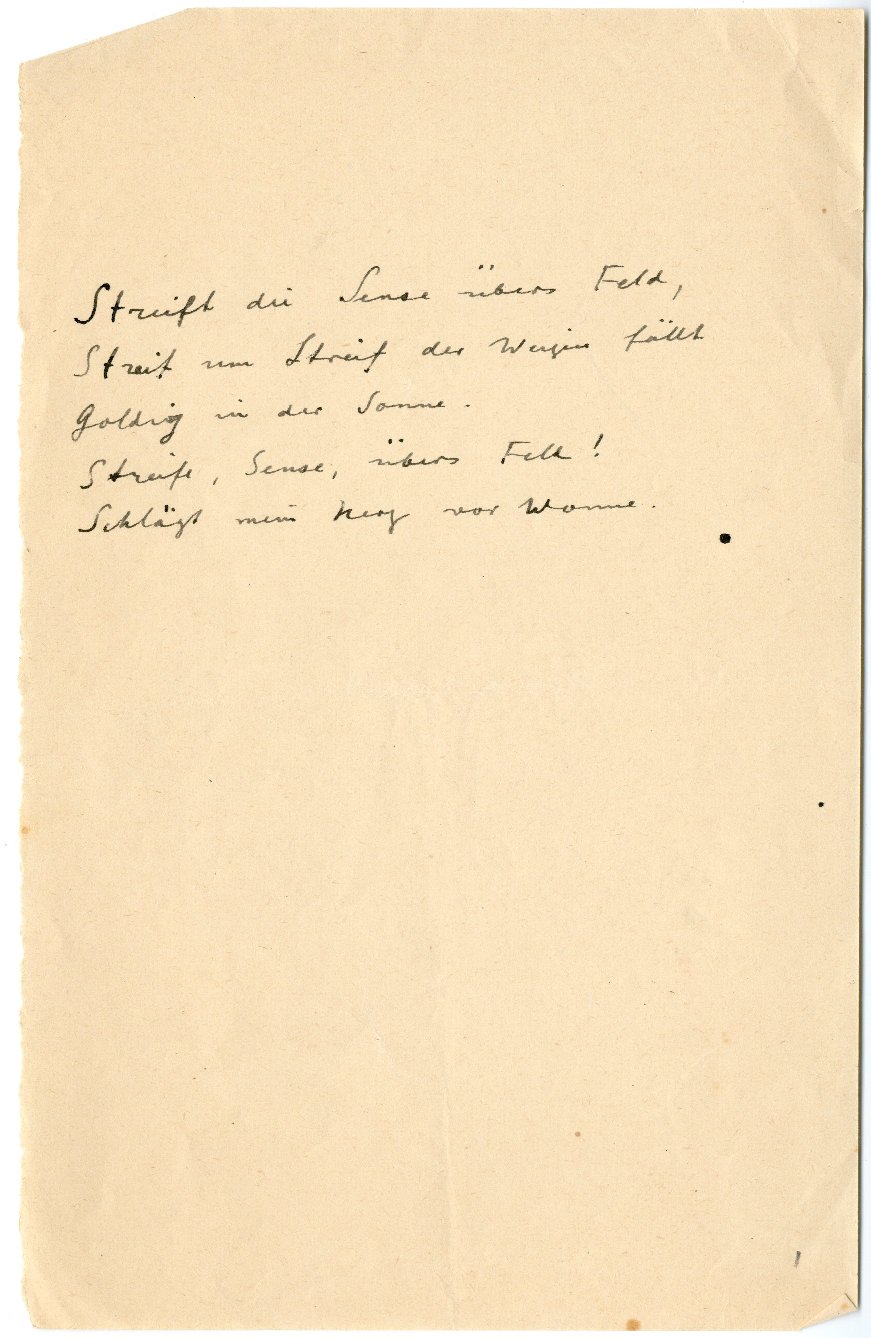 Streift die Sense übers Feld,
Streif um Streif der Weizen fällt
Goldig in der Sonne.
Streife, Sense, übers Feld!
Schlägt mein Herz vor Wonne.